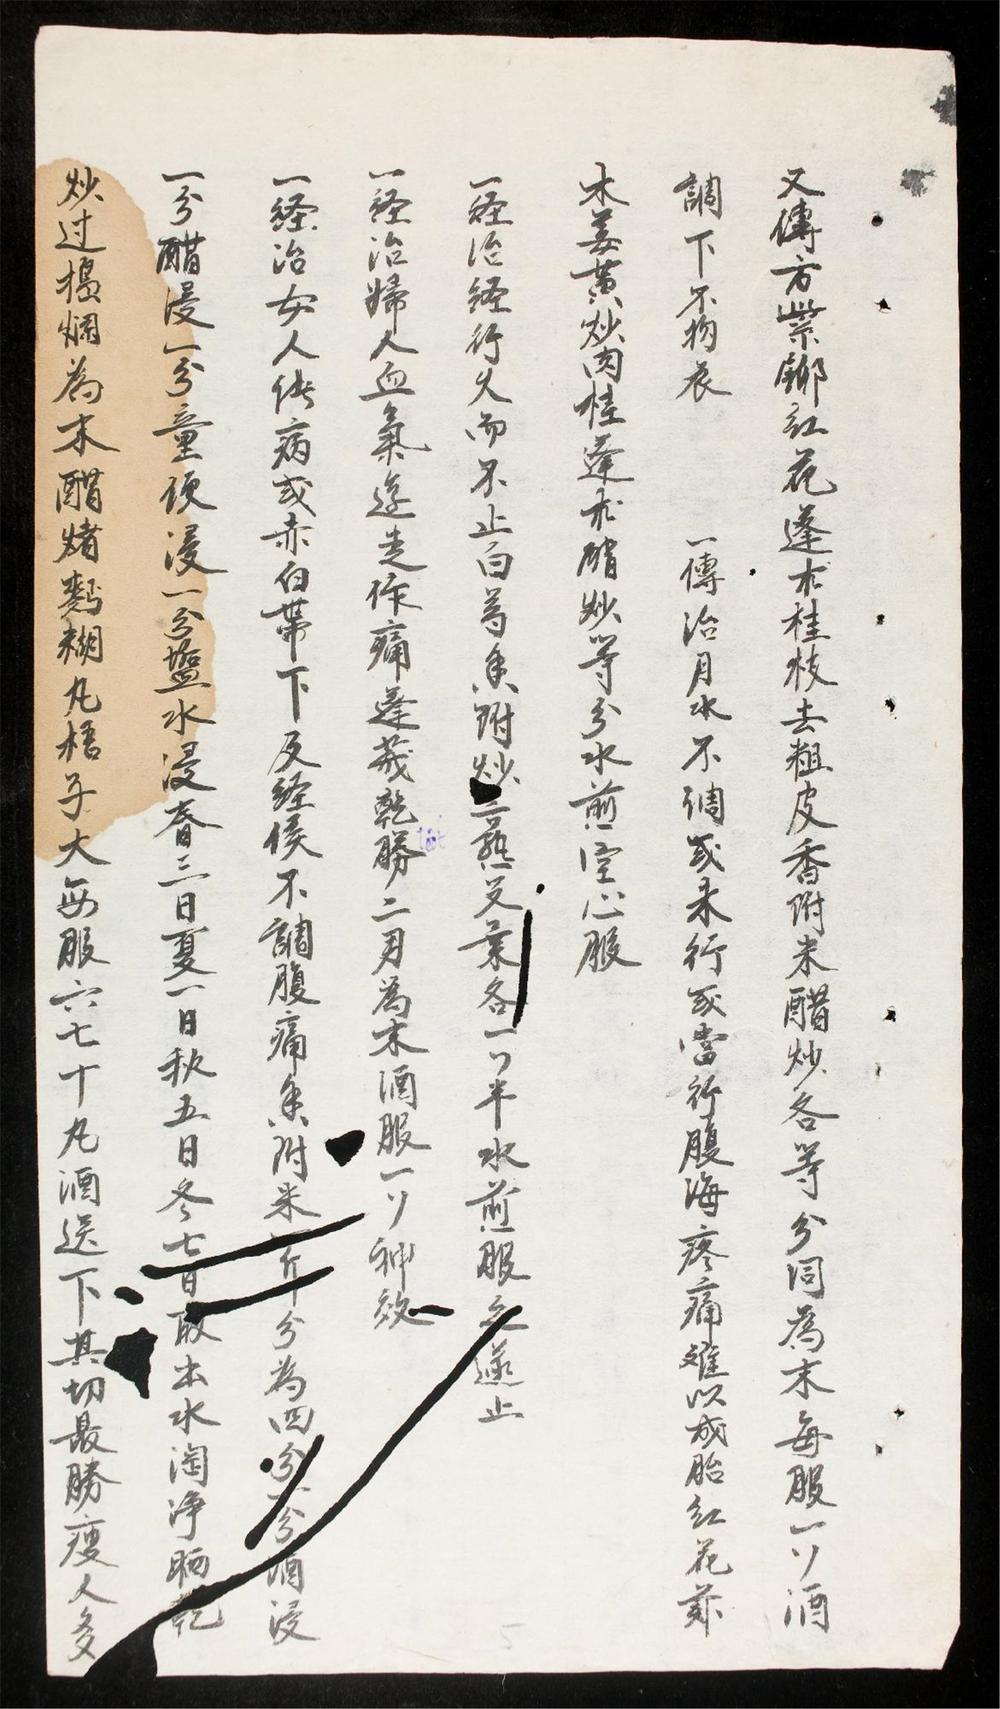 又傳方紫鉚紅花蓬朮桂枝去粗皮香附米醋炒各等分同為末每服一𠃌酒
調下不拘衣　一傳治月水不調或未行或當行腹海疼痛難以成胎紅花蘇
木姜黄炒肉桂蓬朮醋炒等分水煎空心服
一経治経行久而不止白芍香附炒熟艾葉各一𠃌半水煎服之遂止
一経治婦人血氣逆走作痛蓬莪乾勝二月為末酒服一𠃌神效
一経治女人侽病或赤白帶下及経侯不調腹痛香附米一斤分為四分一分酒浸
一分醋浸一分童便浸一分鹽水浸春三日夏一日秋五日冬七日取出水淘净晒乾
炒过搗爛為末醋煑麪糊丸梧子大每服六七十丸酒送下其切最勝瘦人多